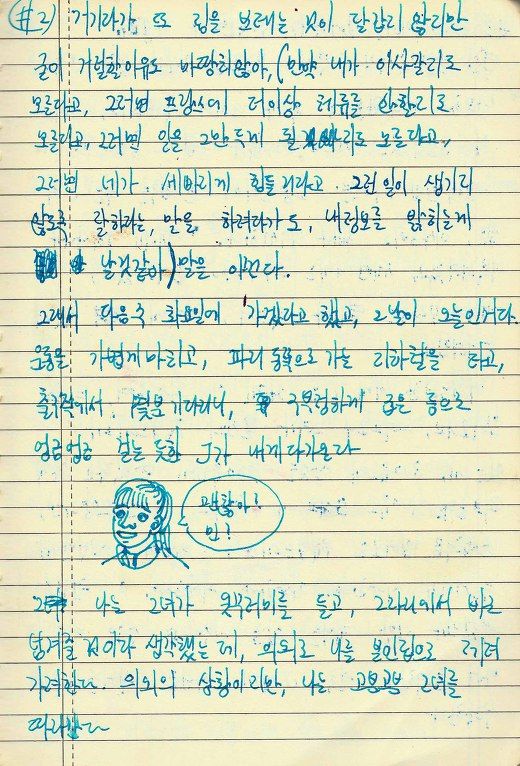 #2) 거기다가 또 짐을 보태는 것이 달갑진 않지만
굳이 거절할 이유도 마땅치 않아, (만약 내가 이사갈지도
모른다고, 그러면 프랑스에 더이상 체류를 안할지도
모른다고, 그러면 일을 그만두게 될 지도 모른다고,
그러면 네가 세바리게 힘들거라고 그런 일이 생기지
않도록 잘 하라는, 말을 하려다가도, 내 정보를 밝히는게
날것같아) 말을 아낀다.
그래서 다음주 화요일에 가겠다고 했고, 그날이 오늘인거다.
운동을 가볍게 마치고, 파리 동쪽으로 가는 지하철을 타고,
출구쪽에서 몇분 기다리니, 구부정하게 굽은 등으로
엉금엉금 걷는 듯한 J가 내게 다가온다
괜찮아?
민?
나는 그녀가 옷꾸러미를 들고, 그 자리에서 바로
넘겨줄 것이라 생각했는데, 의외로 나를 본인 집으로 데려
가려한다. 의외의 상황이지만, 나는 고분고분 그녀를
따라간다